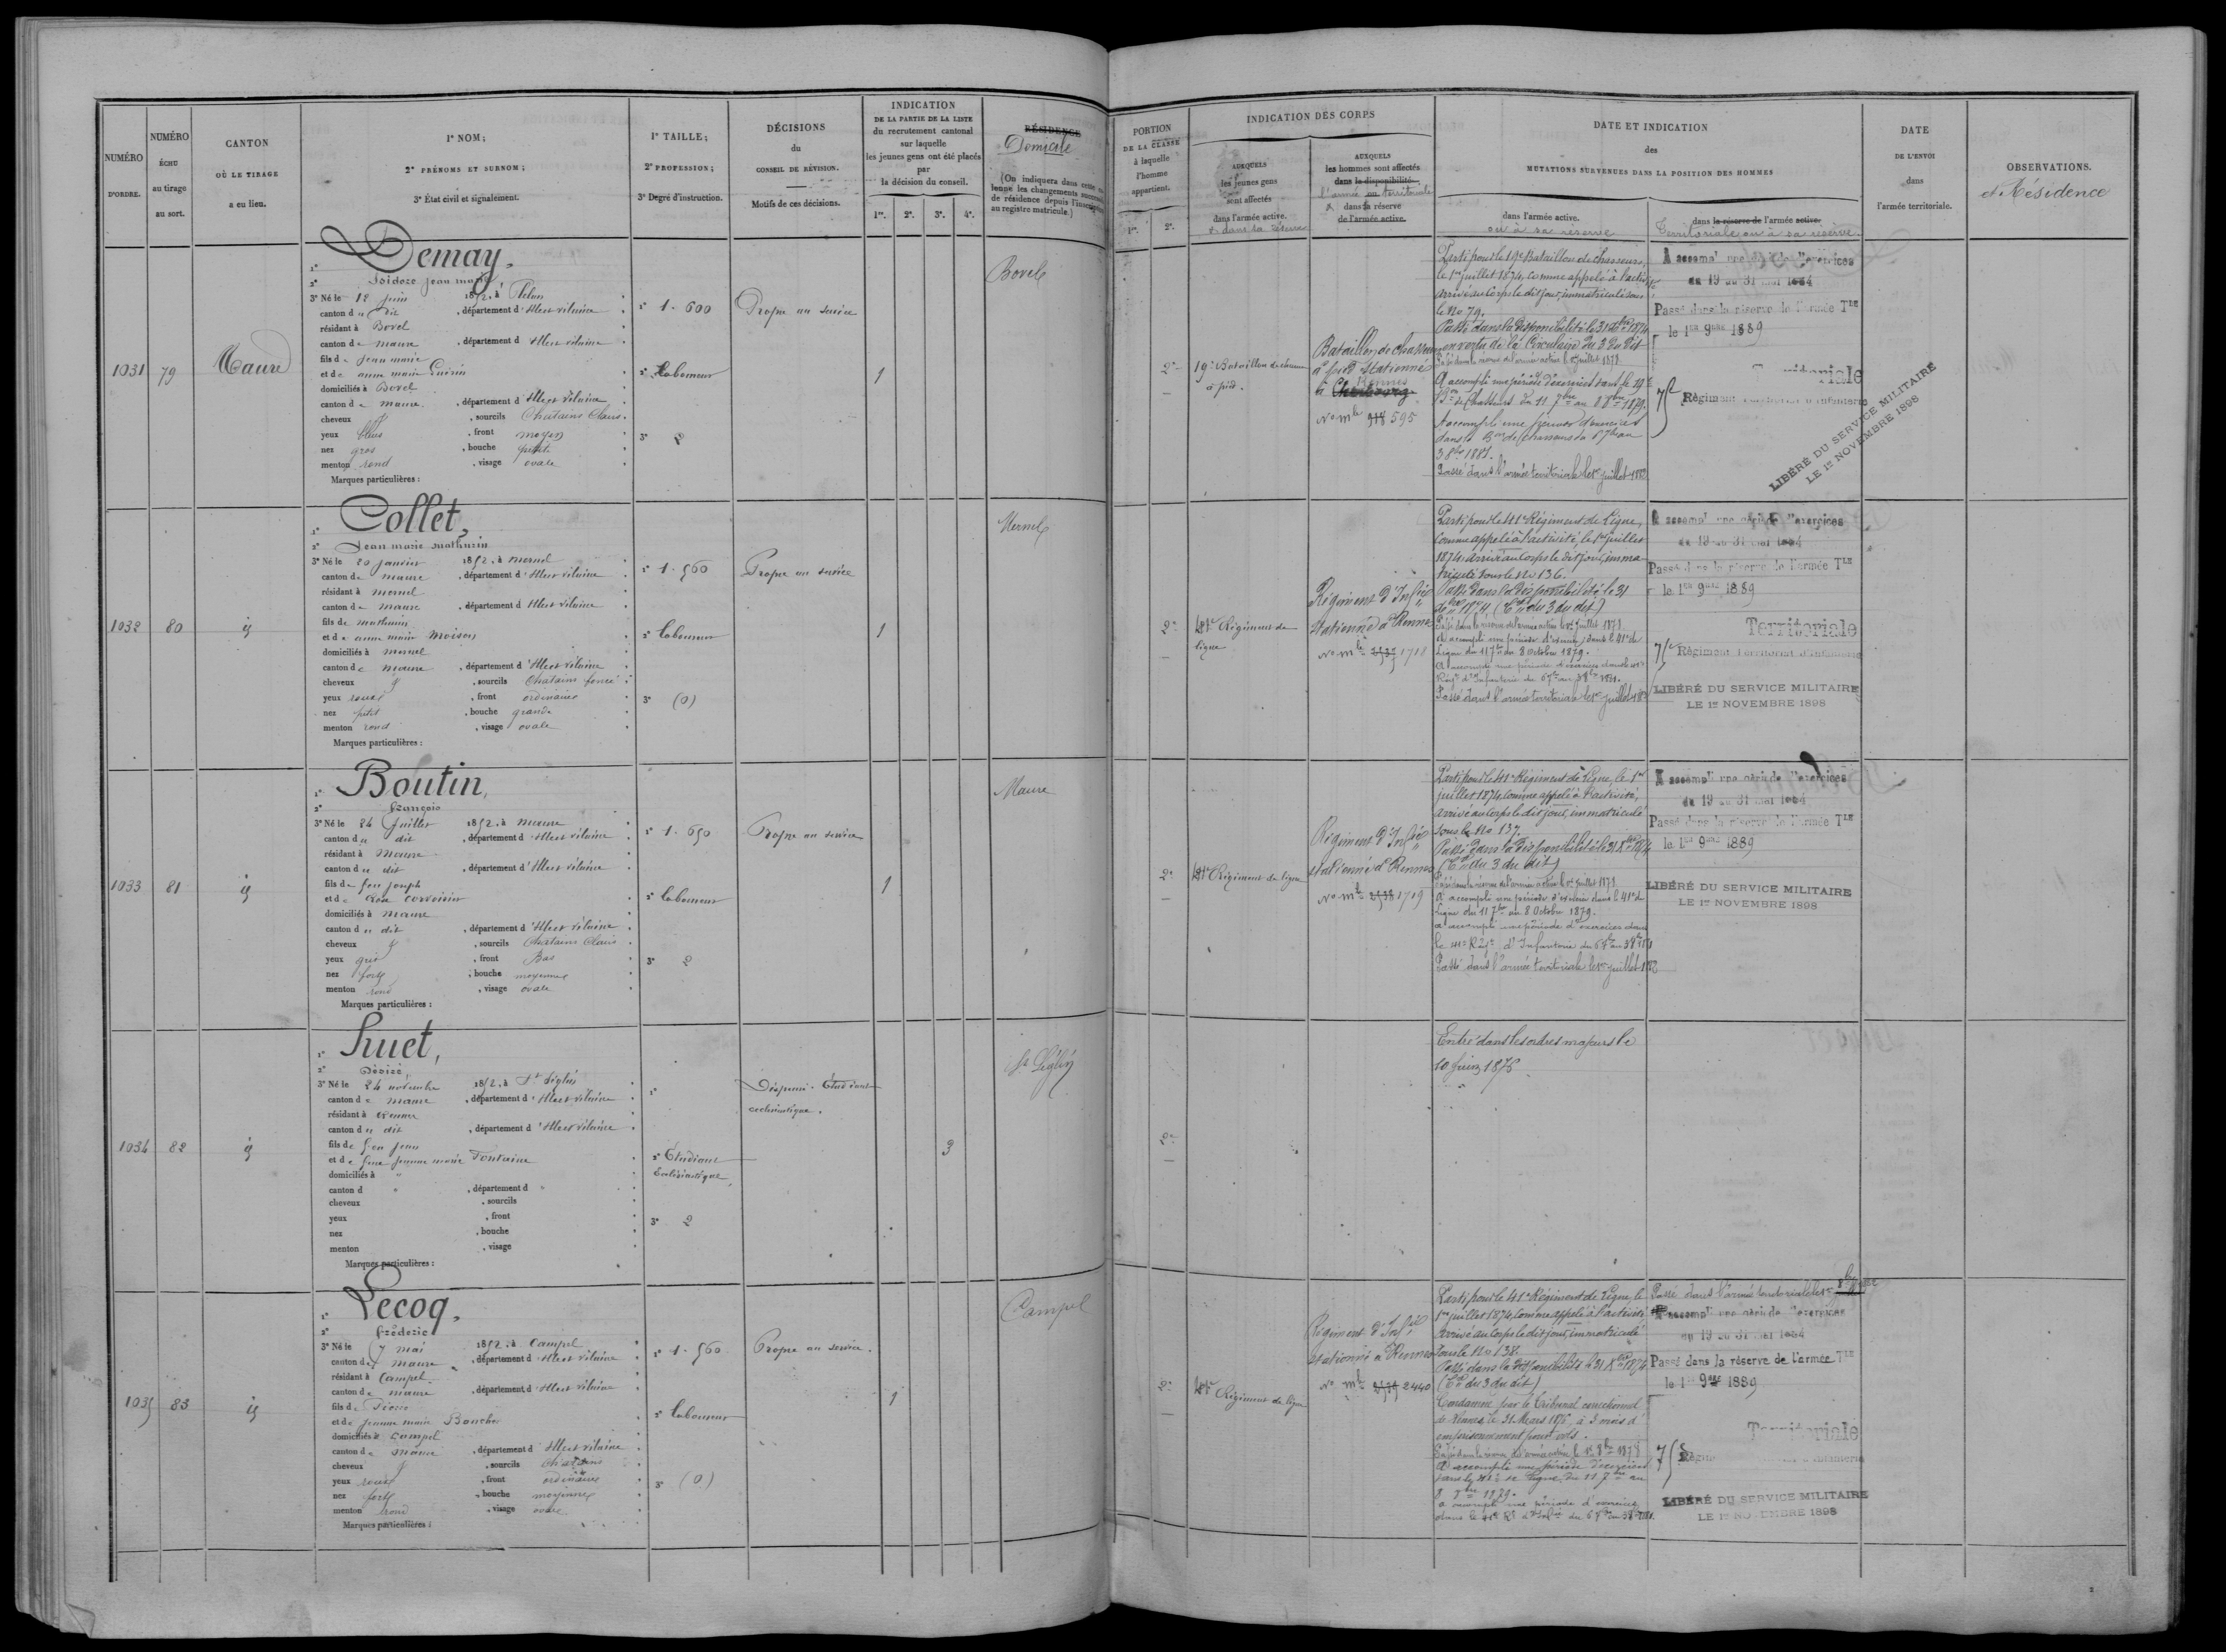 NUMÉRO D'ORDRE.
NUMÉRO ÉCHU au tirage au sort.
CANTON OÙ LE TIRAGE a eu lieu.
1° NOM;
2° PRÉNOMS ET SURNOM;
3° État civil et signalement.
1° TAILLE;
2° PROFESSION;
3° Degré d'instruction.
DÉCISIONS
du
CONSEIL DE RÉVISION.
Motifs de ces décisions.
INDICATION
DE LA PARTIE DE LA LISTE
du recrutement cantonal
sur laquelle
les jeunes gens ont été placés
par
la décision du conseil.
1re. 2e. 3e. 4e.
RÉSIDENCE
Domicile
PORTION
DE LA CLASSE
à laquelle
l'homme
appartient.
1re. 2e.
INDICATION DES CORPS
AUXQUELS
les jeunes gens
sont affectés
dans l'armée active.
et dans la réserve
AUXQUELS
les hommes sont affectés
dans la disponibilité
l'armée territoriale
dans la réserve
de l'armée active.
DATE ET INDICATION
des
MUTATIONS SURVENUES DANS LA POSITION DES HOMMES
dans l'armée active.
ou à sa réserve
dans la réserve de l'armée active.
Territoriale ou à sa réserve
DATE
DE L'ENVOI
dans
l'armée territoriale.
OBSERVATIONS.
et Résidence
1031
79
Maure
Demay,
Isidore jean marie
3° Né le 12 juin 1852, à Pléla
canton du dit, département d'Ille et vilaine
résidant à Bovel
canton de maure, département d'Ille et vilaine
fils de jean marie
et de anne marie Guérin
domiciliés à Bovel
canton de maure, département d'Ille et vilaine
cheveux, sourcils Chatains Clairs
yeux bleus, front moyen
nez gros, bouche petite
menton rond, visage ovale
Marques particulières :
1° 1.600
2° Laboureur
3° 2
Propre au service
1
Bovel
2e
19e Bataillon de chasseurs
à pied.
Bataillon de chasseurs
à pied stationné
à Cherbourg
Rennes
No mle 918 595
Parti pour le 19e Bataillon de chasseurs,
le 1er juillet 1874, comme appelé à l'activité
arrivé au Corps le dit jour, immatriculé sous
le No 79.
Passé dans la disponibilité le 31 Xbre 1874
en vertu de la Circulaire du 3 du dit
Passé dans la réserve de l'armée active le 1er juillet 1878
A accompli une période d'exercices dans le 19e
Bon de Chasseurs du 11 7bre au 8 8bre 1879.
A accompli une période d'exercices
dans le Bon de chasseurs du 6 7bre au
3 8bre 1881.
Passé dans l'armée territoriale le 1er juillet 1882
A accompli une période d'exercices
du 19 au 31 mai 1884
Passé dans la réserve de l'armée Tle
le 1er 9bre 1889
Territoriale
75e Régiment Territorial d'Infanterie
LIBÉRÉ DU SERVICE MILITAIRE
LE 1er NOVEMBRE 1898
1032
80
id
Collet,
Jean marie mathurin
3° Né le 20 janvier 1852, à mernel
canton de maure, département d'Ille et vilaine
résidant à mernel
canton de maure, département d'Ille et vilaine
fils de mathurin
et de anne marie Moison
domiciliés à mernel
canton de maure, département d'Ille et vilaine
cheveux &, sourcils Chatains foncé
yeux roux, front ordinaire
nez petit, bouche grande
menton rond, visage ovale
Marques particulières :
1° 1.560
2° Laboureur
3° (0)
Propre au service
1
Mernel
2e
41e Régiment de
ligne
Régiment d'Infie
stationné à Rennes
No mle 2537 1718
Parti pour le 41e Régiment de Ligne,
comme appelé à l'activité, le 1er juillet
1874, arrivé au Corps le dit jour, imma-
triculé sous le No 136.
Passé dans la disponibilité le 31
Xbre 1874 (Cre du 3 du dit)
Passé dans la réserve de l'armée active le 1er juillet 1878
A accompli une période d'exercices dans le 41e de
Ligne du 11 7bre au 8 Octobre 1879.
A accompli une période d'exercices dans le 41e
Régt d'Infanterie du 6 7bre au 3 8bre 1881.
Passé dans l'armée territoriale le 1er juillet 1882
A accompli une période d'exercices
du 19 au 31 mai 1884
Passé dans la réserve de l'armée Tle
le 1er 9bre 1889
Territoriale
75e Régiment Territorial d'Infanterie
LIBÉRÉ DU SERVICE MILITAIRE
LE 1er NOVEMBRE 1898
1033
81
id
Boutin,
François
3° Né le 24 Juillet 1852, à maure
canton du dit, département d'Ille et vilaine
résidant à maure
canton du dit, département d'Ille et vilaine
fils de feu joseph
et de Corvoisier
domiciliés à maure
canton du dit, département d'Ille et vilaine
cheveux &, sourcils Chatains Clairs
yeux gris, front Bas
nez fort, bouche moyenne
menton rond, visage ovale
Marques particulières :
1° 1.650
2° Laboureur
3° 2
Propre au service
1
Maure
2e
41e Régiment de ligne
Régiment d'Infie
stationné à Rennes
No mle 2538 1719
Parti pour le 41e Régiment de Ligne, le 1er
juillet 1874, comme appelé à l'activité,
arrivé au Corps le dit jour, immatriculé
sous le No 137.
Passé dans la disponibilité le 31 Xbre 1874
(Cre du 3 du dit)
Passé dans la réserve de l'armée active le 1er juillet 1878
A accompli une période d'exercices dans le 41e de
Ligne du 11 7bre au 8 Octobre 1879.
a accompli une période d'exercices dans
le 41e Régt d'Infanterie du 6 7bre au 3 8bre 1881
Passé dans l'armée territoriale le 1er juillet 1882
A accompli une période d'exercices
du 19 au 31 mai 1884
Passé dans la réserve de l'armée Tle
le 1er 9bre 1889
LIBÉRÉ DU SERVICE MILITAIRE
LE 1er NOVEMBRE 1898
1034
82
id
Huet,
Désiré
3° Né le 24 novembre 1852, à St Séglin
canton de maure, département d'Ille et vilaine
résidant à Rennes
canton du dit, département d'Ille et vilaine
fils de feu jean
et de feue jeanne marie Fontaine
domiciliés à "
canton d ", département d "
cheveux, sourcils
yeux, front
nez, bouche
menton, visage
Marques particulières :
1°
2° Etudiant
Ecclésiastique
3° 2
Dispensé. Etudiant
ecclésiastique.
3
St Séglin
2e
Entré dans les ordres majeurs le
10 juin 1876
1035
83
id
Lecoq,
Fréderic
3° Né le 7 mai 1852, à Campel
canton de maure, département d'Ille et vilaine
résidant à Campel
canton de maure, département d'Ille et vilaine
fils de Pierre
et de jeanne marie Boucher
domiciliés à Campel
canton de maure, département d'Ille et vilaine
cheveux &, sourcils Chatains
yeux roux, front ordinaire
nez fort, bouche moyenne
menton rond, visage ovale
Marques particulières :
1° 1.560
2° Laboureur
3° (0)
Propre au service.
1
Campel
2e
41e Régiment de ligne
Régiment d'Infie
stationné à Rennes
No mle 2539 2440
Parti pour le 41e Régiment de Ligne, le
1er juillet 1874, comme appelé à l'activité
arrivé au Corps le dit jour, immatriculé
sous le No 138.
Passé dans la disponibilité le 31 Xbre 1874
(Cre du 3 du dit)
Condamné par le tribunal correctionnel
de Rennes le 31 Mars 1876, à 3 mois d'
emprisonnement pour vol.
Passé dans la réserve de l'armée active le 1er 8bre 1878
A accompli une période d'exercices
dans le 41e de Ligne, du 11 7bre au
8 8bre 1879.
a accompli une période d'exercices
dans le 41e Rt d'Infie du 6 7bre au 3 8bre 1881.
Passé dans l'armée territoriale le 1er
A accompli une période d'exercices
du 19 au 31 mai 1884
Passé dans la réserve de l'armée Tle
le 1er 9bre 1889
Territoriale
75e Régiment Territorial d'Infanterie
LIBÉRÉ DU SERVICE MILITAIRE
LE 1er NOVEMBRE 1898